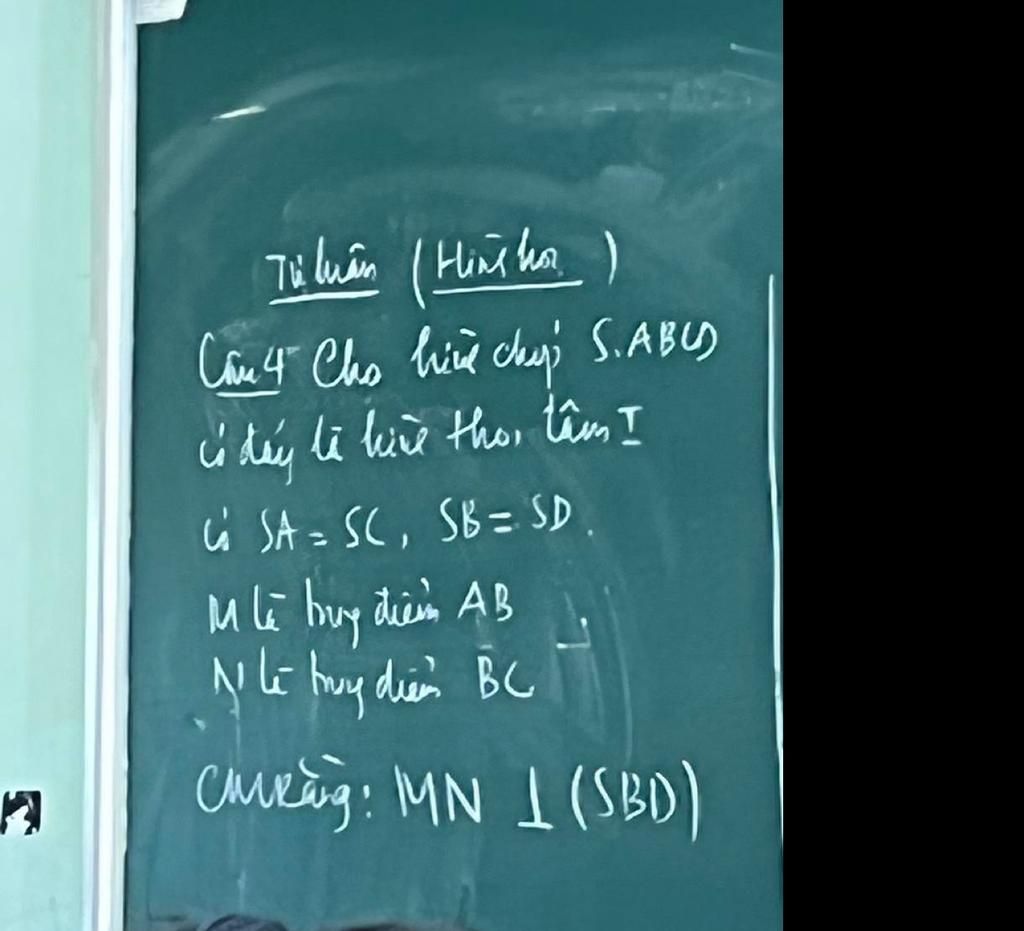 Tự luận (Hình học)
Câu 4 Cho hình chóp S.ABCD
có đáy là hình thoi tâm I
có SA = SC, SB = SD.
M là trung điểm AB
N là trung điểm BC
CM Rằng: MN ⊥ (SBD)